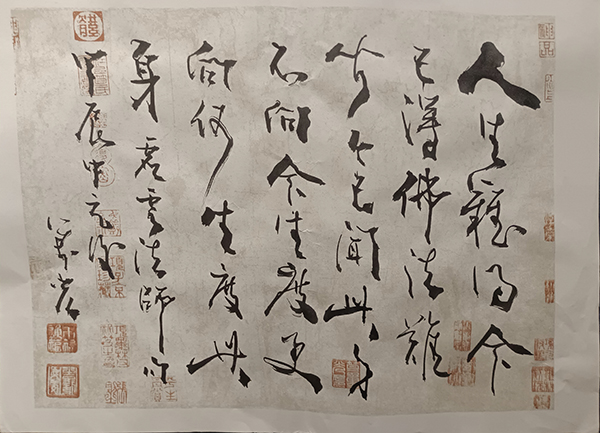 人生難得今
已得佛法難
聞今已聞此身
不向今生度更
向何生度此
身 虛雲法師
甲辰中元後